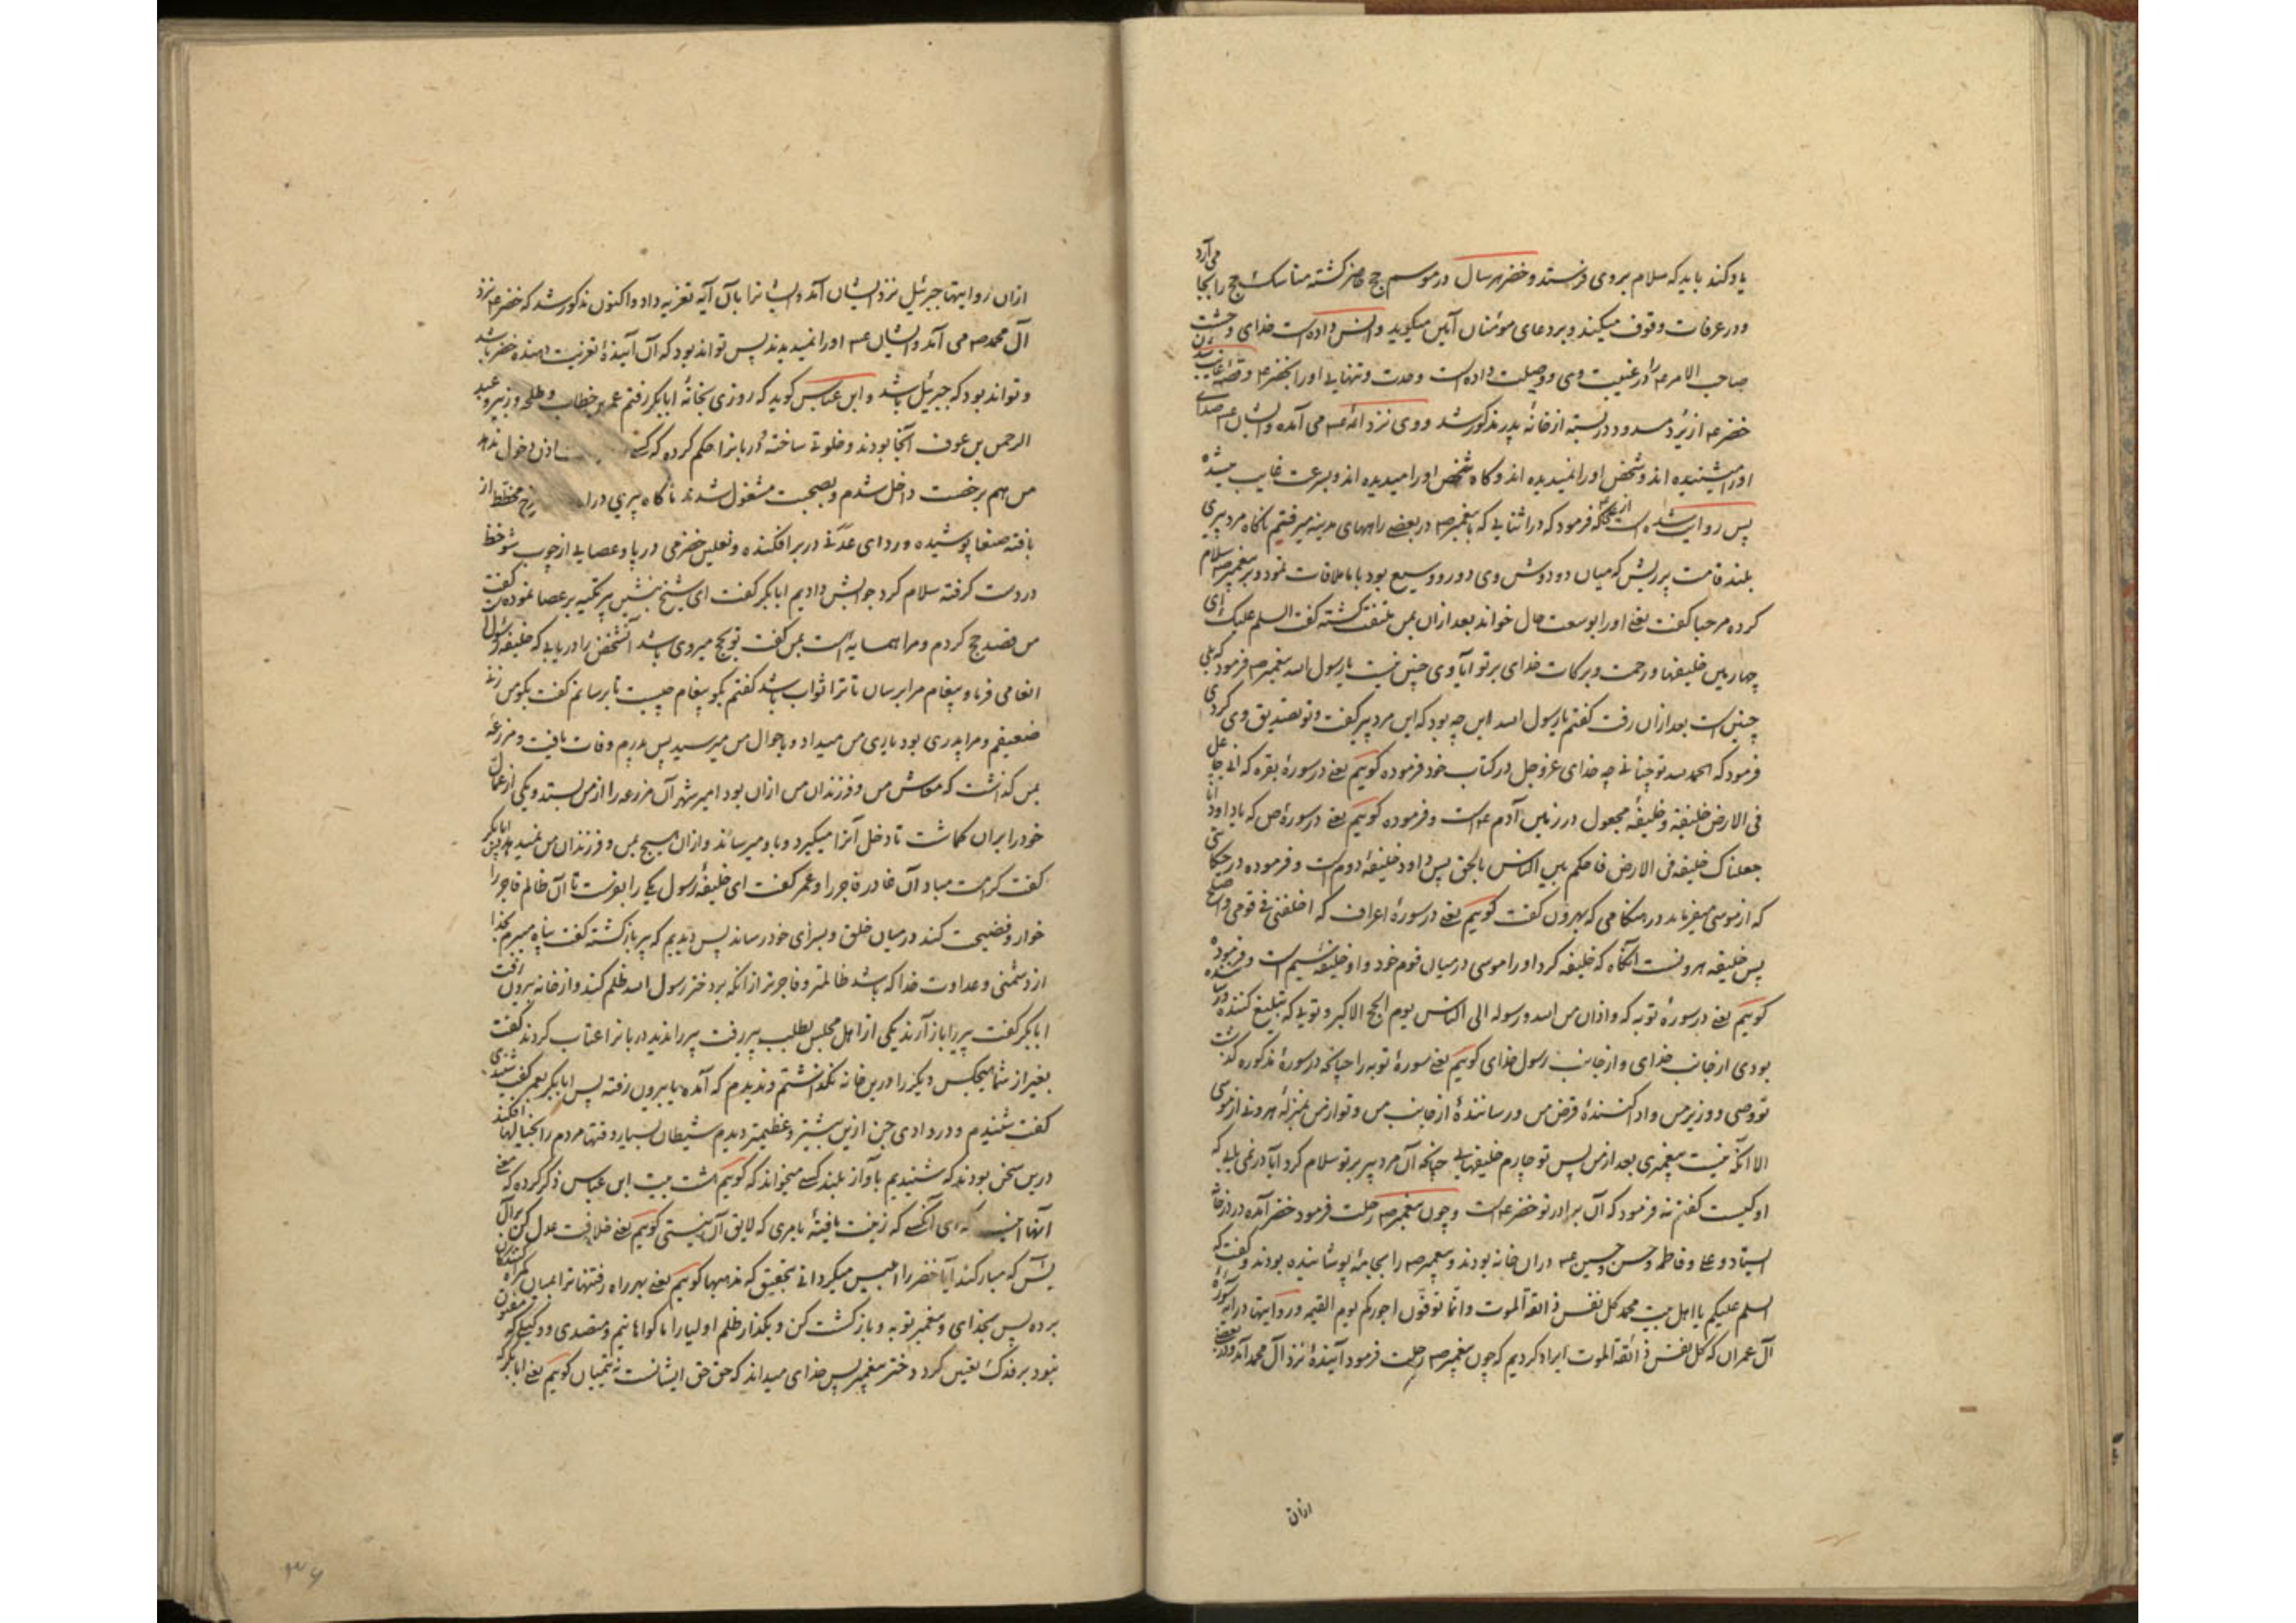 یاد کند باید که سلام بروی فرستد و خضر هر سال در موسم حج حاضر گشته مناسک حج را بجا می آرد
و در عرفات وقوف میکند و بر دعای مومنان آمین میگوید و انس داده است خدای وحشت
صاحب الامر ع را در غیبت وی و وصیلت داده است وحدت و تنهایی او را بخضر ع و قصه غایب شدن
خضر ع از نزد مسدود در بسته از خانه پدر مذکور شد و وی نزد ائمه ع می آمده و ایشان ع صدای
او را میشنیده اند و شخص او را نمیدیده اند و گاه شخص او را میدیده اند و بسرعت غایب میشده
پس روایت شده است از علی ع که فرمود که در اثنایی که با پیغمبر ص در بعضی راههای مدینه میرفتیم ناگاه مرد پیری
بلند قامت پر ریش که میان دو دوش وی دور و وسیع بود با ما ملاقات نمود و بر پیغمبر ص سلام
کرده مرحبا گفت یعنی او را بوسعت حال خواند بعد ازان بمن ملتفت گشته گفت السلم علیک ای
چهارمین خلیفها و رحمت و برکات خدای بر تو آیا وی چنین نیست یا رسول الله پیغمبر ص فرمود که بلی
چنین است بعد ازان رفت گفتم یا رسول الله این چه بود که این مرد پیر گفت و تو تصدیق وی کردی
فرمود که الحمد لله تو چنانی چه خدای عز و جل در کتاب خود فرموده گوییم یعنی در سورهٔ بقره که انی جاعل
فی الارض خلیفة و خلیفهٔ مجعول در زمین آدم ع است و فرموده گوییم یعنی در سورهٔ ص که یا داود انا
جعلناک خلیفة فی الارض فاحکم بین الناس بالحق پس داود خلیفهٔ دوم است و فرموده در حکایتی
که از موسی میفرماید در هنگامی که بهرون گفت گوییم یعنی در سورهٔ اعراف که اخلفنی فی قومی و اصلح
پس خلیفه هرونست آنگاه که خلیفه کرد او را موسی در میان قوم خود و او خلیفهٔ سیم است و فرموده
گوییم یعنی در سورهٔ توبه که و اذان من الله و رسوله الی الناس یوم الحج الاکبر و تویی که تبلیغ کننده و رساننده
بودی از جانب خدای و از جانب رسول خدای گوییم یعنی سورهٔ توبه را چنانکه در سورهٔ مذکوره گذشت
تو وصی و وزیر من و ادا کنندهٔ قرض من و رسانندهٔ از جانب من و تو از من بمنزلهٔ هرونی از موسی
الا آنکه نیست پیغمبری بعد از من پس تو چارم خلیفهایی چنانکه آن مرد پیر بر تو سلام کرد آیا در نمی یابی که
او کیست گفتم نه فرمود که آن برادر تو خضر ع است و چون پیغمبر ص رحلت فرمود خضر آمده در در خانه
ایستاد و علی و فاطمه و حسن و حسین ع دران خانه بودند و پیغمبر ص را بجامهٔ پوشانیده بودند و گفت که
السلم علیکم یا اهل بیت محمد کل نفس ذائقة الموت و انما توفون اجورکم یوم القیمه و روایتها در آیهٔ سورهٔ
آل عمران که کل نفس ذائقة الموت ایراد کردیم که چون پیغمبر ص رحلت فرمود آیندهٔ نزد آل محمد آمد و در بعضی
ازان
ازان روایتها جبرئیل نزد ایشان آمد و ایشانرا بآن آیه تعزیه داد و اکنون مذکور شد که خضر ع نزد
آل محمد ص می آمد و ایشان ع او را نمیدیدند پس تواند بود که آن آیندهٔ تعزیت دهنده خضر باشد
و تواند بود که جبرئیل باشد و ابن عباس گوید که روزی بخانهٔ ابابکر رفتم عمر بن خطاب و طلحه و زبیر و عبد
الرحمن بن عوف آنجا بودند و خلوتی ساخته دربانرا حکم کرده که کسی اذن دخول ندهد
من هم برخصت داخل شدم و بصحبت مشغول شدند ناگاه پیری درا مخطط از
بافته صنعا پوشیده و ردای عدنی در بر افکنده و نعلین حضرمی در پا و عصایی از چوب شوخط
در دست گرفته سلام کرد جوابش دادیم ابابکر گفت ای شیخ بنشین پیر تکیه بر عصا نموده گفت
من قصد حج کردم و مرا همسایه است بمن گفت تو بحج میروی باشد آنشخص را دریابی که خلیفه رسول
انعامی فرما و پیغام مرا برسان تا ترا ثواب باشد گفتم بگو پیغام چیست تا برسانم گفت بگو من زن
ضعیفم و مرا پدری بود یاری من میداد و باحوال من میرسید پس پدرم وفات یافت و مزرعه
بمن گذاشت که معاش من و فرزندان من ازان بود امیر شهر آن مزرعه را از من بستد و یکی از عمال
خود را بران گماشت تا دخل آنرا میگیرد و باو میرساند و ازان هیچ بمن و فرزندان من نمیدهد ابابکر
گفت کرامت مباد آن غادر فاجر را و عمر گفت ای خلیفهٔ رسول یکی را بفرست تا آن ظالم فاجر را
خوار و فضیحت کند در میان خلق و بسزای خود رساند پس دیدیم که پیر بازگشته گفت پناه میبرم بخدا
از دشمنی و عداوت خدا که باشد ظالمتر و فاجرتر از آنکه بر دختر رسول الله ظلم کند و از خانه بیرون رفت
ابابکر گفت پیر را باز آرند یکی از اهل مجلس بطلب پیر رفت پیر را ندید دربانرا عتاب کردند گفت
بغیر از شما هیچکس دیگر را درین خانه نگذاشتم و ندیدم که آمده یا بیرون رفته پس ابابکر بعمر گفت شنیدی
گفت شنیدم و در وادی جن ازین بیشتر و عظیمتر دیدم شیطان بسیار وقتها مردم را بخیالها افکند
درین سخن بودند که شنیدیم بآواز بلند کسی میخواند که گوییم هشت بیت ابن عباس ذکر کرده که معنی
آنها اینست که ای آنکسی که زینت یافتهٔ بامری که لایق آن نیستی گوییم یعنی خلافت عدول کن بر آل
یس که مبارکند آیا خضر را ابلیس میگردانی بتحقیق که مذهبها گوییم یعنی بهر راه رفتنها ترا بمیان گمراه کنندگان
برده پس بخدای و پیغمبر توبه و بازگشت کن و بگذار ظلم اولیا را ما گواهانیم و متصدی و وکیلی که
نبود بر فدک تعیین کرد دختر پیغمبر پس خدای میداند که حق حق ایشانست نه تیمیان گوییم یعنی ابابکر که
۳۶